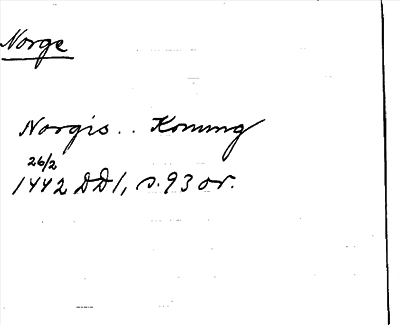 Norge
Norgis.. Konung
26/2
1442 DD1, s. 93 or.